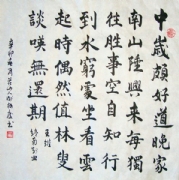 中歲頗好道晚家
南山陲興來每獨
往胜事空自知行
到水窮處坐看雲
起時偶然值林叟
談無還期
王維
辛卯